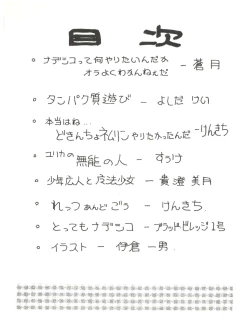 目次
。ナデシコって何やりたいんだか
オラよくわかんねぇだ － 蒼月
。タンパク質遊び － よしだ けい
。本当はね…
どきんちょネムリンやりたかったんだ －けんきち
。ユリカの無能の人 － すぅけ
。少年広人と魔法少女 － 貴澄美月
。れっつあんどごう － けんきち.
。とってもナデシコ － ブラッドビレッジ1号
。イラスト － 伊倉一男.